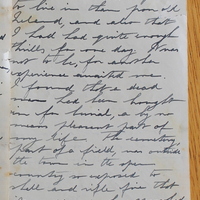 to live in them poor old
Ireland, and also that
I had had quite enough
thrills for one day. It was
not to be, for another
experience awaited me.
I found that a dead
man had been brought
in for burial, & by no
means pleasant part of
my life. The cemetery,
part of a field, was outside
the town in the open
country so exposed to
shell and rifle fire that